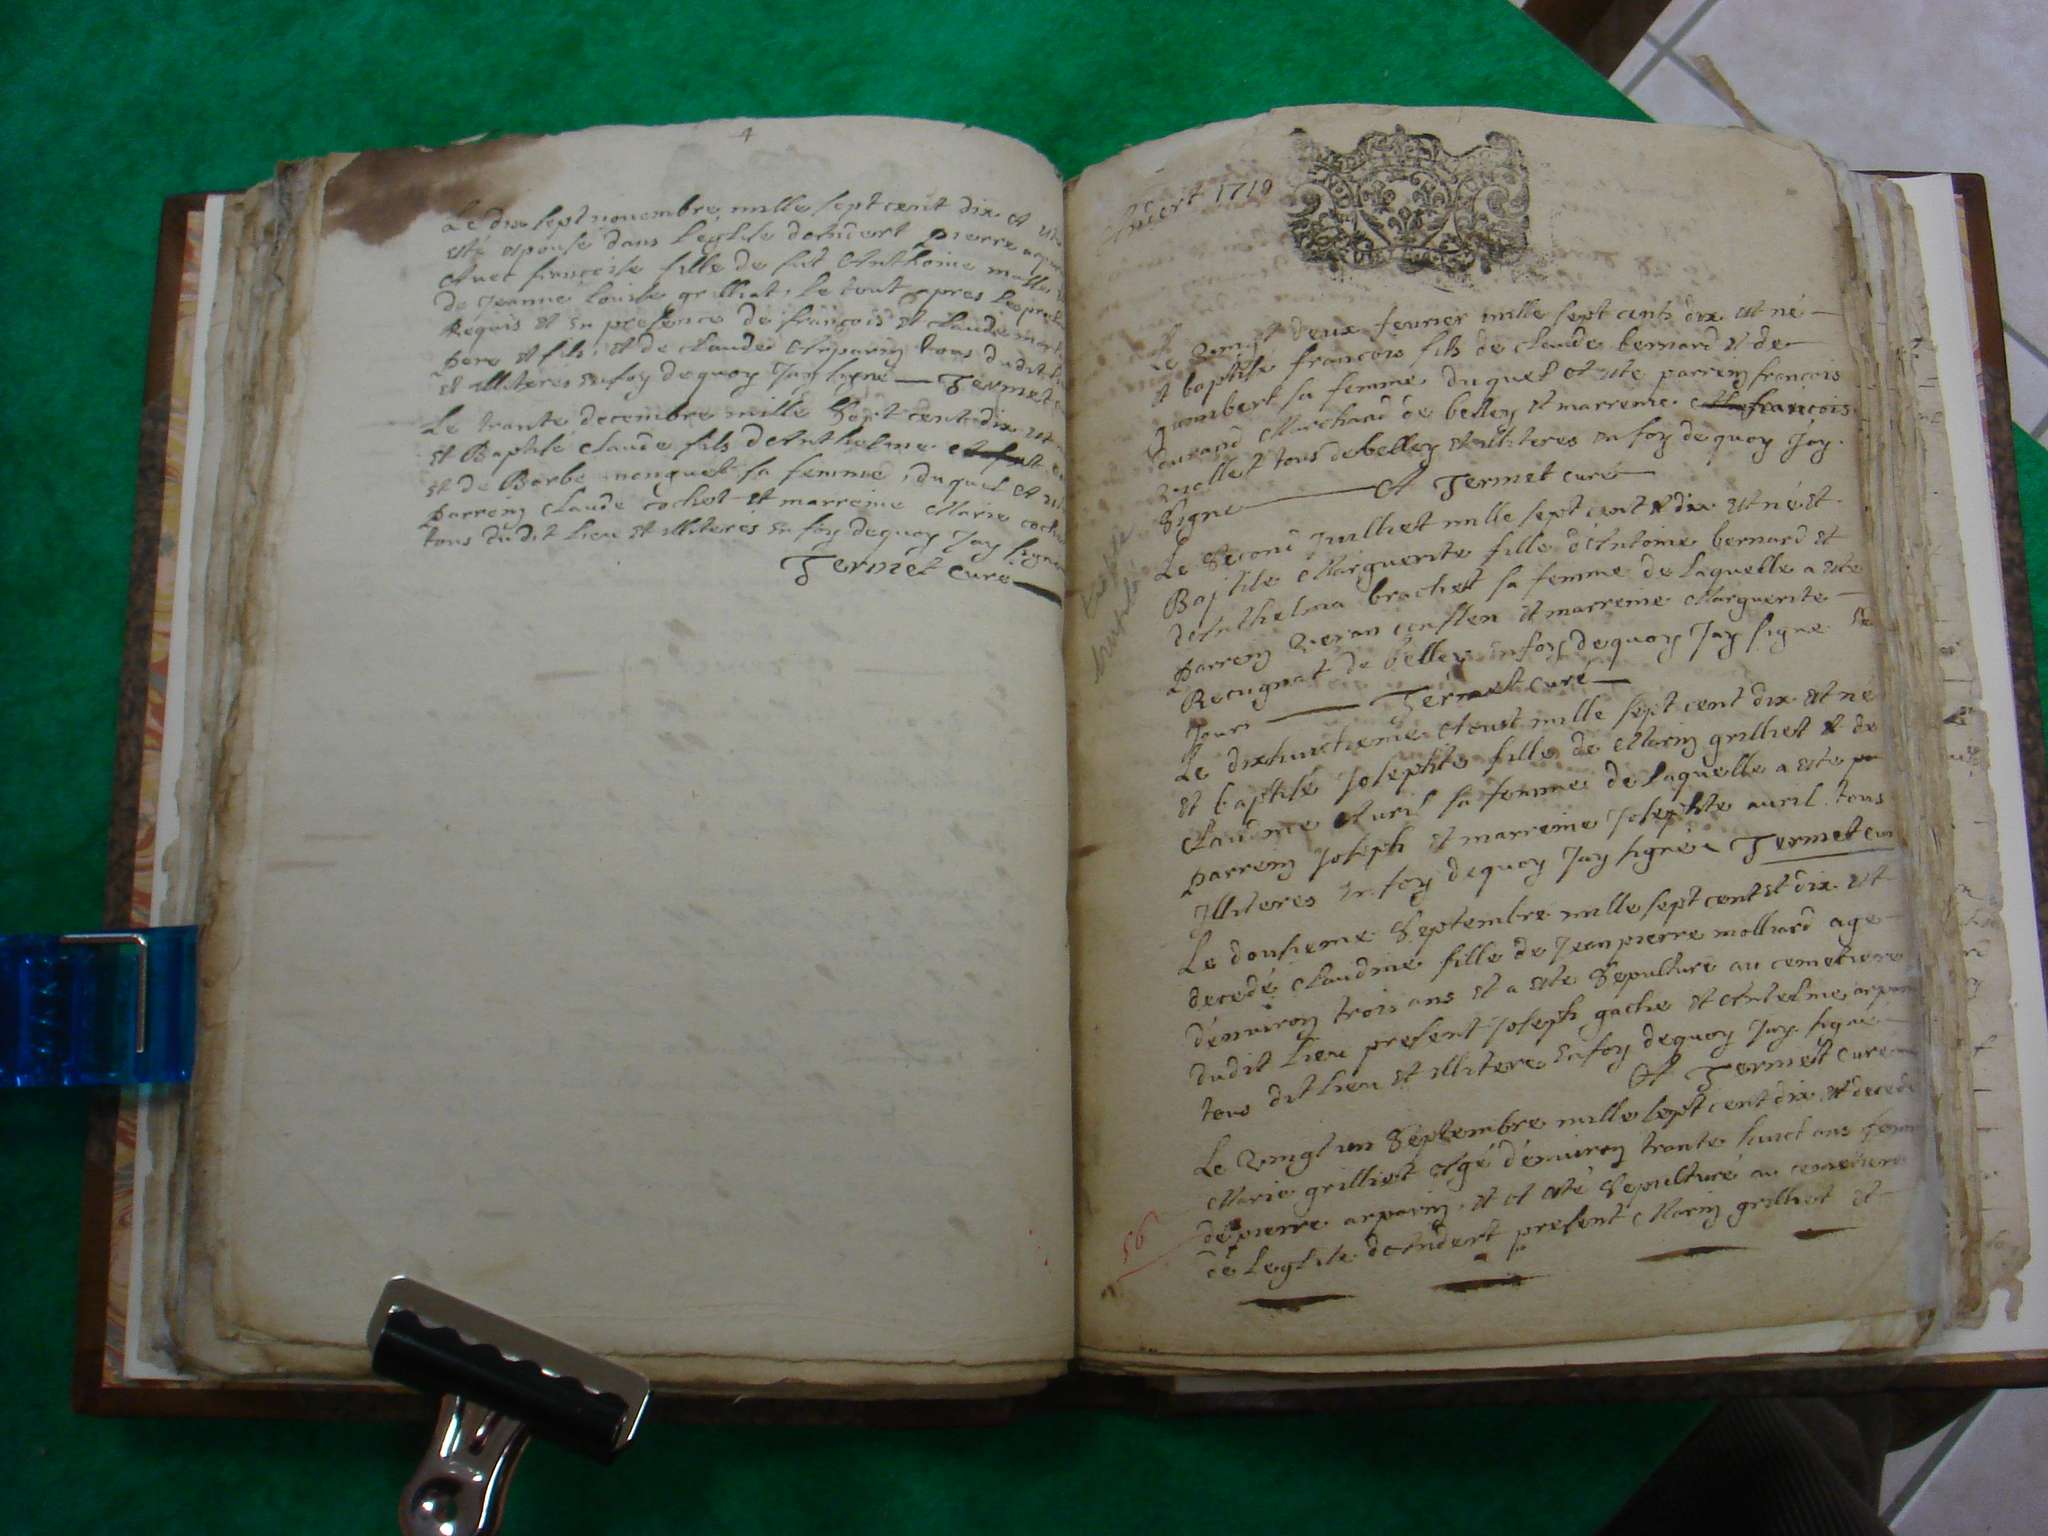 4
Le dix sept novembre mille sept cent dix et
esté espousé dans leglise dAndert pierre
Avec françoise fille de fut Anthoine
de Jeanne Louise grilliat, le tout apres les
Requis et en presence de françois et claude
pere et fils, et de claude Arparin tous dudit
et illiteres en foy de quoy Jay signé Termet
Le trante decembre mille sept cent dix est
et Baptisé Claude fils dAnthelme
et de Barbe monguet sa femme, duquel at
parrein Claude cochet et marreine Marie
tous dudit lieu et illiteres en foy dequoy Jay signé
Termet curé
Andert 1710
Le vingt deux fevrier mille sept cents dix est né
et baptisé francois fils de claude bernard et de
humbert sa femme duquel at esté parrein francois
durand Marchand de belley et marreine francoise
mollet tous de belley et illiteres en foy de quoy Jay
Signé A Termet curé
Le Second Juilliet mille sept cent dix est né et
Baptisé Marguerite fille dAntoine bernard et
dAnthelma brachet sa femme de Laquelle a esté
parrein et marreine Marguerite
Recugnat de belley en foy de quoy Jay signé
Jour Termet curé
Le dixhuictieme Aoust mille sept cent dix est né
et baptisé Josephte fille de Marin grilliet et de
Claudine Avril sa femme de Laquelle a esté
parrein Joseph et marreine Josephte avril tous
Illiteres en foy dequoy Jay signé Termet
Le dousieme Septembre mille sept cent et dix est
decedé Claudine fille de Jean pierre molliard agé
d'environ trois ans et a esté Sepulturé au cemetiere
dudit Lieu present Joseph gache et Antelme
tous dit lieu et illitere en foy dequoy Jay signé
A Termet curé
Le vingt un Septembre mille sept cent dix est decedé
Marie grilliet Agé d'environ trante huict ans femme
de pierre arparin et at esté Sepulturé au cemetiere
de Leglise dAndert present Marin grilliet et
56